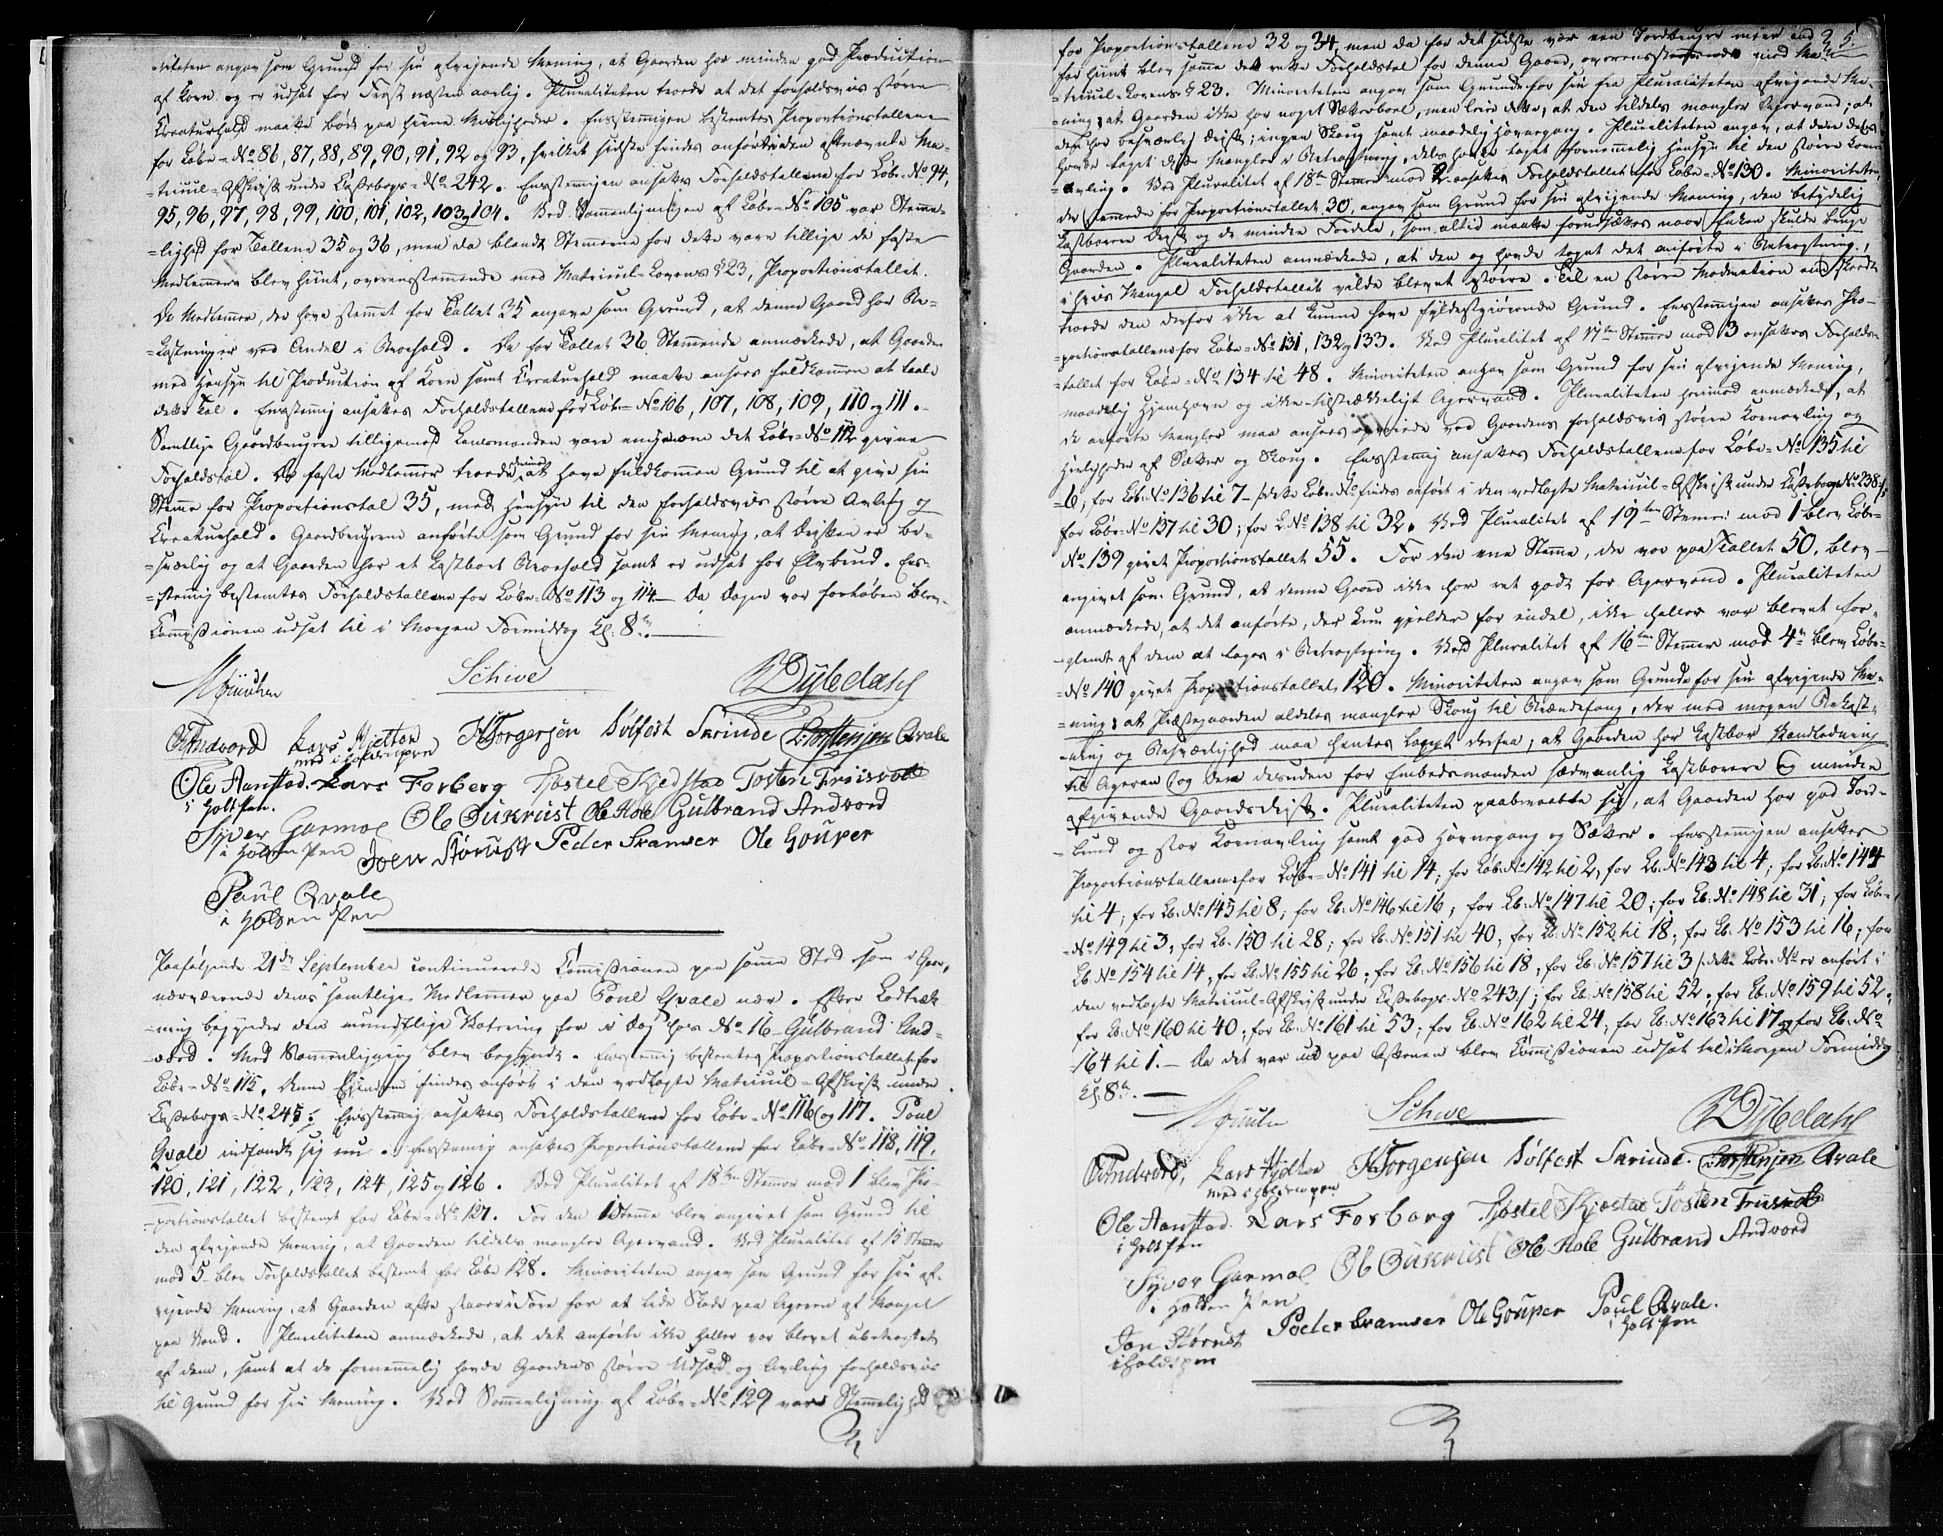 -riteten angav som Grund for sin afvigende Mening, at Gaarden har mindre god Production
af Korn og er udsat for Frost næsten aarlig. Pluraliteten troede at det forholdsviis større
Creaturhold maatte bøde paa hiine Misligheder. Eensstemmigen bestemtes Proportionstallene
for Løbe-No 86, 87, 88, 89, 90, 91, 92 og 93, hvilket sidste findes anført i den oftnævnte Ma-
-tricul-Afskrift under Kassebogs-No 242. Eensstemmigen ansattes Forholdstallene for Løbe-No 94,
95, 96, 97, 98, 99, 100, 101, 102, 103 og 104. Ved Sammenligningen af Løbe-No 105 var Stemme-
-lighed for Tallene 35 og 36, men da blandt Stemmerne for dette vare tillige de faste
Medlemmer blev hiint, overensstemmende med Matricul-Lovens § 23, Proportionstallet.
De Medlemmer, der have stemmet for Tallet 35 angave som Grund, at denne Gaard har Be-
-kostninger ved Andel i Broehold. De for Tallet 36 Stemmende anmærkede, at Gaarden
med Hensyn til Production af Korn samt Creaturhold maatte ansees fuldkommen at taale
dette Tal. Eensstemmig ansattes Forholdstallene for Løbe-No 106, 107, 108, 109, 110 og 111.
Samtlige Gaardbrugere tilligemed Lensmanden vare enige om det Løbe-No 112 givne
Forholdstal. De faste Medlemmer troede derimod at have fuldkommen Grund til at give sin
Stemme for Proportionstal 35, med Hensyn til den forholdsviis større Avling og
Creaturhold. Gaardbrugerne anførte som Grund for sin Mening, at Driften er be-
-sværlig og at Gaarden har et kostbart Broehold samt er udsat for Elvbrud. Een-
-stemmig bestemtes Forholdstallene for Løbe-No 113 og 114. Da Dagen var forløben blev
Commissionen udsat til i Morgen Formiddag Kl. 8te.
Schive
Dybedahl
Andvord Lars Hjeltar H Torgersen Sølfest Skrinde Torstensen Qvale
med iholden pen
Ole Aanstad Lars Forberg Kjøstel Kjestad Tosten Trøisvold
i holt Pen.
Syver Garmoe Ole Bukrust Ole Hole Gulbrand Andvord
i holden Pen Joen Størust Peder Kramser Ole Goüper
Paul Qvale
i holden Pen
Paafølgende 21de September continuerede Commissionen paa samme Sted som i Gaar,
nærværende dens samtlige Medlemmer paa Poul Qvale nær. Efter Lodtræk-
-ning begynder den mundtlige Votering for i Dag hos No 16 Gulbrand And-
-vord. Med Sammenligning blev begyndt. Eensstemmig bestemtes Proportionstallet for
Løbe-No 115. Denne Eiendom findes anført i den vedlagte Matricul-Afskrift under
Kassebogs-No 245. Eensstemmig ansattes Forholdstallene for Løbe-No 116 og 117. Poul
Qvale indfandt sig nu. Eensstemmig ansattes Proportionstallene for Løbe-No 118, 119,
120, 121, 122, 123, 124, 125 og 126. Ved Pluralitet af 18ten Stemmer mod 1 blev Pro-
-portionstallet bestemt for Løbe-No 127. For den 1 Stemme blev angivet som Grund til
den afvigende Mening, at Gaarden tildels mangler Agervand. Ved Pluralitet af 15 Stemmer
mod 5 blev Forholdstallet bestemt for Løbe 128. Minoriteten angav som Grund for sin af-
vigende Mening, at Gaarden ofte staaer i Fare for at lide Skade paa Ageren af Mangel
paa Vand. Pluraliteten anmærkede, at det anførte ikke heller var blevet ubetragtet
af dem, samt at de fornemmelig havde Gaardens større Udsæd og Avling forholdsviis
til Grund for sin Mening. Ved Sammenligning af Løbe-No 129 var Stemmelighed
for Proportionstallene 32 og 34, men da for det sidste var een Jordbruger meer end 25.
for hiint blev samme det rette Forholdstal for denne Gaard, overensstemmende med Ma-
-tricul-Lovens § 23. Minoriteten angav som Grunde for sin fra Pluraliteten afvigende Me-
-ning, at Gaarden ikke har noget Sæterboel, men leier dette, at den tildels mangler Agervand, at
den har besværlig Drift, ingen Skoug samt maadelig Havnegang. Pluraliteten angav, at den dels
havde taget disse Mangler i Betragtning, dels havde taget fornemmelig Hensyn til den større Korn-
-avling. Ved Pluralitet af 18ten Stemmer mod 2 ansattes Forholdstallet for Løbe-No 130. Minoriteten,
der stemmede for Proportionstallet 30, angav som Grund for sin afvigende Mening, den betydelig
kostbarere Drift og de mindre Fordele, som altid maatte forudsættes naar Enken skulde bruge
Gaarden. Pluraliteten anmærkede, at den og havde taget det anførte i Betragtning,
i hvis Mangel Forholdstallet vilde blevet større. Til en større Moderation end skeedt
troede den derfor ikke at kunne have fyldestgjørende Grund. Eensstemmigen ansattes Pro-
-portionstallene for Løbe-No 131, 132 og 133. Ved Pluralitet af 17ten Stemmer mod 3 ansattes Forholds-
-tallet for Løbe-No 134 til 48. Minoriteten angav som Grund for sin afvigende Mening,
maadelig Hjemhavn og ikke tilstrækkeligt Agervand. Pluraliteten herimod anmærkede, at
de anførte Mangler maa ansees opveiede ved Gaardens forholdsviis større Kornavling og
Herligheder af Sæter og Skoug. Eensstemmig ansattes Forholdstallene for Løbe-No 135 til
6, for Løb-No 136 til 7 /: dette Løbe-No findes anført i den vedlagte Matricul-Afskrift under Kassebogs No 238 :/
for Løbe-No 137 til 30; for L No 138 til 32. Ved Pluralitet af 19ten Stemmer mod 1 blev Løbe-
No 139 givet Proportionstallet 55. For den ene Stemme, der var paa Tallet 50, blev
angivet som Grund, at denne Gaard ikke har ret godt for Agervand. Pluraliteten
anmærkede, at det anførte, der kun gjelder for endel, ikke heller var blevet for-
-glemt af dem at tages i Betragtning. Ved Pluralitet af 16ten Stemmer mod 4re blev Løbe-
-No 140 givet Proportionstallet 120. Minoriteten angav som Grunde for sin afvigende Me-
-ning, at Præstegaarden aldeles mangler Skoug til Brændefang, der med megen Bekost-
-ning og Besværlighed maa hentes langt derfra, at Gaarden har kostbar Vandledning
til Ageren og den desuden for Embedsmanden sædvanlig kostbarere og mindre
afgivende Gaardsdrift. Pluraliteten paaberaabte sig, at Gaarden har god Jord-
-bund og stor Kornavling samt god Havnegang og Sæter. Eensstemmigen ansattes
Proportionstallene for Løbe-No 141 til 14; for Løb-No 142 til 2, for Lb. No 143 til 4; for Lb. No 144
til 4; for Lb. No 145 til 8; for Lb. No 146 til 16, for Lb. No 147 til 20; for Lb. No 148 til 31; for Løbe-
-No 149 til 3, for Lb. 150 til 28; for Lb. No 151 til 40, for Lb. No 152 til 18; for Lb. No 153 til 16; for
Lb. No 154 til 14, for Lb. No 155 til 26; for Lb. No 156 til 18, for Lb. No 157 til 3 /: dette Løbe-No er anført i
den vedlagte Matricul-Afskrift under Kassebogs No 243 :/; for Lb. No 158 til 52, for Lb. No 159 til 52,
for Lb. No 160 til 40; for Lb. No 161 til 53; for Lb. No 162 til 24, for Lb. No 163 til 17 og for Lb. No
164 til 1. Da det var ud paa Aftenen blev Commissionen udsat til i Morgen Formiddag
Kl. 8te.
Schive
Dybedahl
Andvord, Lars Hjeltar H Torgensen Sølfest Skrinde. Torstensen Qvale
med i holden pen
Ole Aanstad. Lars Forberg Kjøstel Kjestad Tosten Trøisvold
i holt Pen
Syver Garmoe Ole Bukrust Ole Hole Gulbrand Andvord
i holden Pen
Jon Størust Peder Kramser Ole Goüper Paul Qvale.
i holdspen i holt Pen